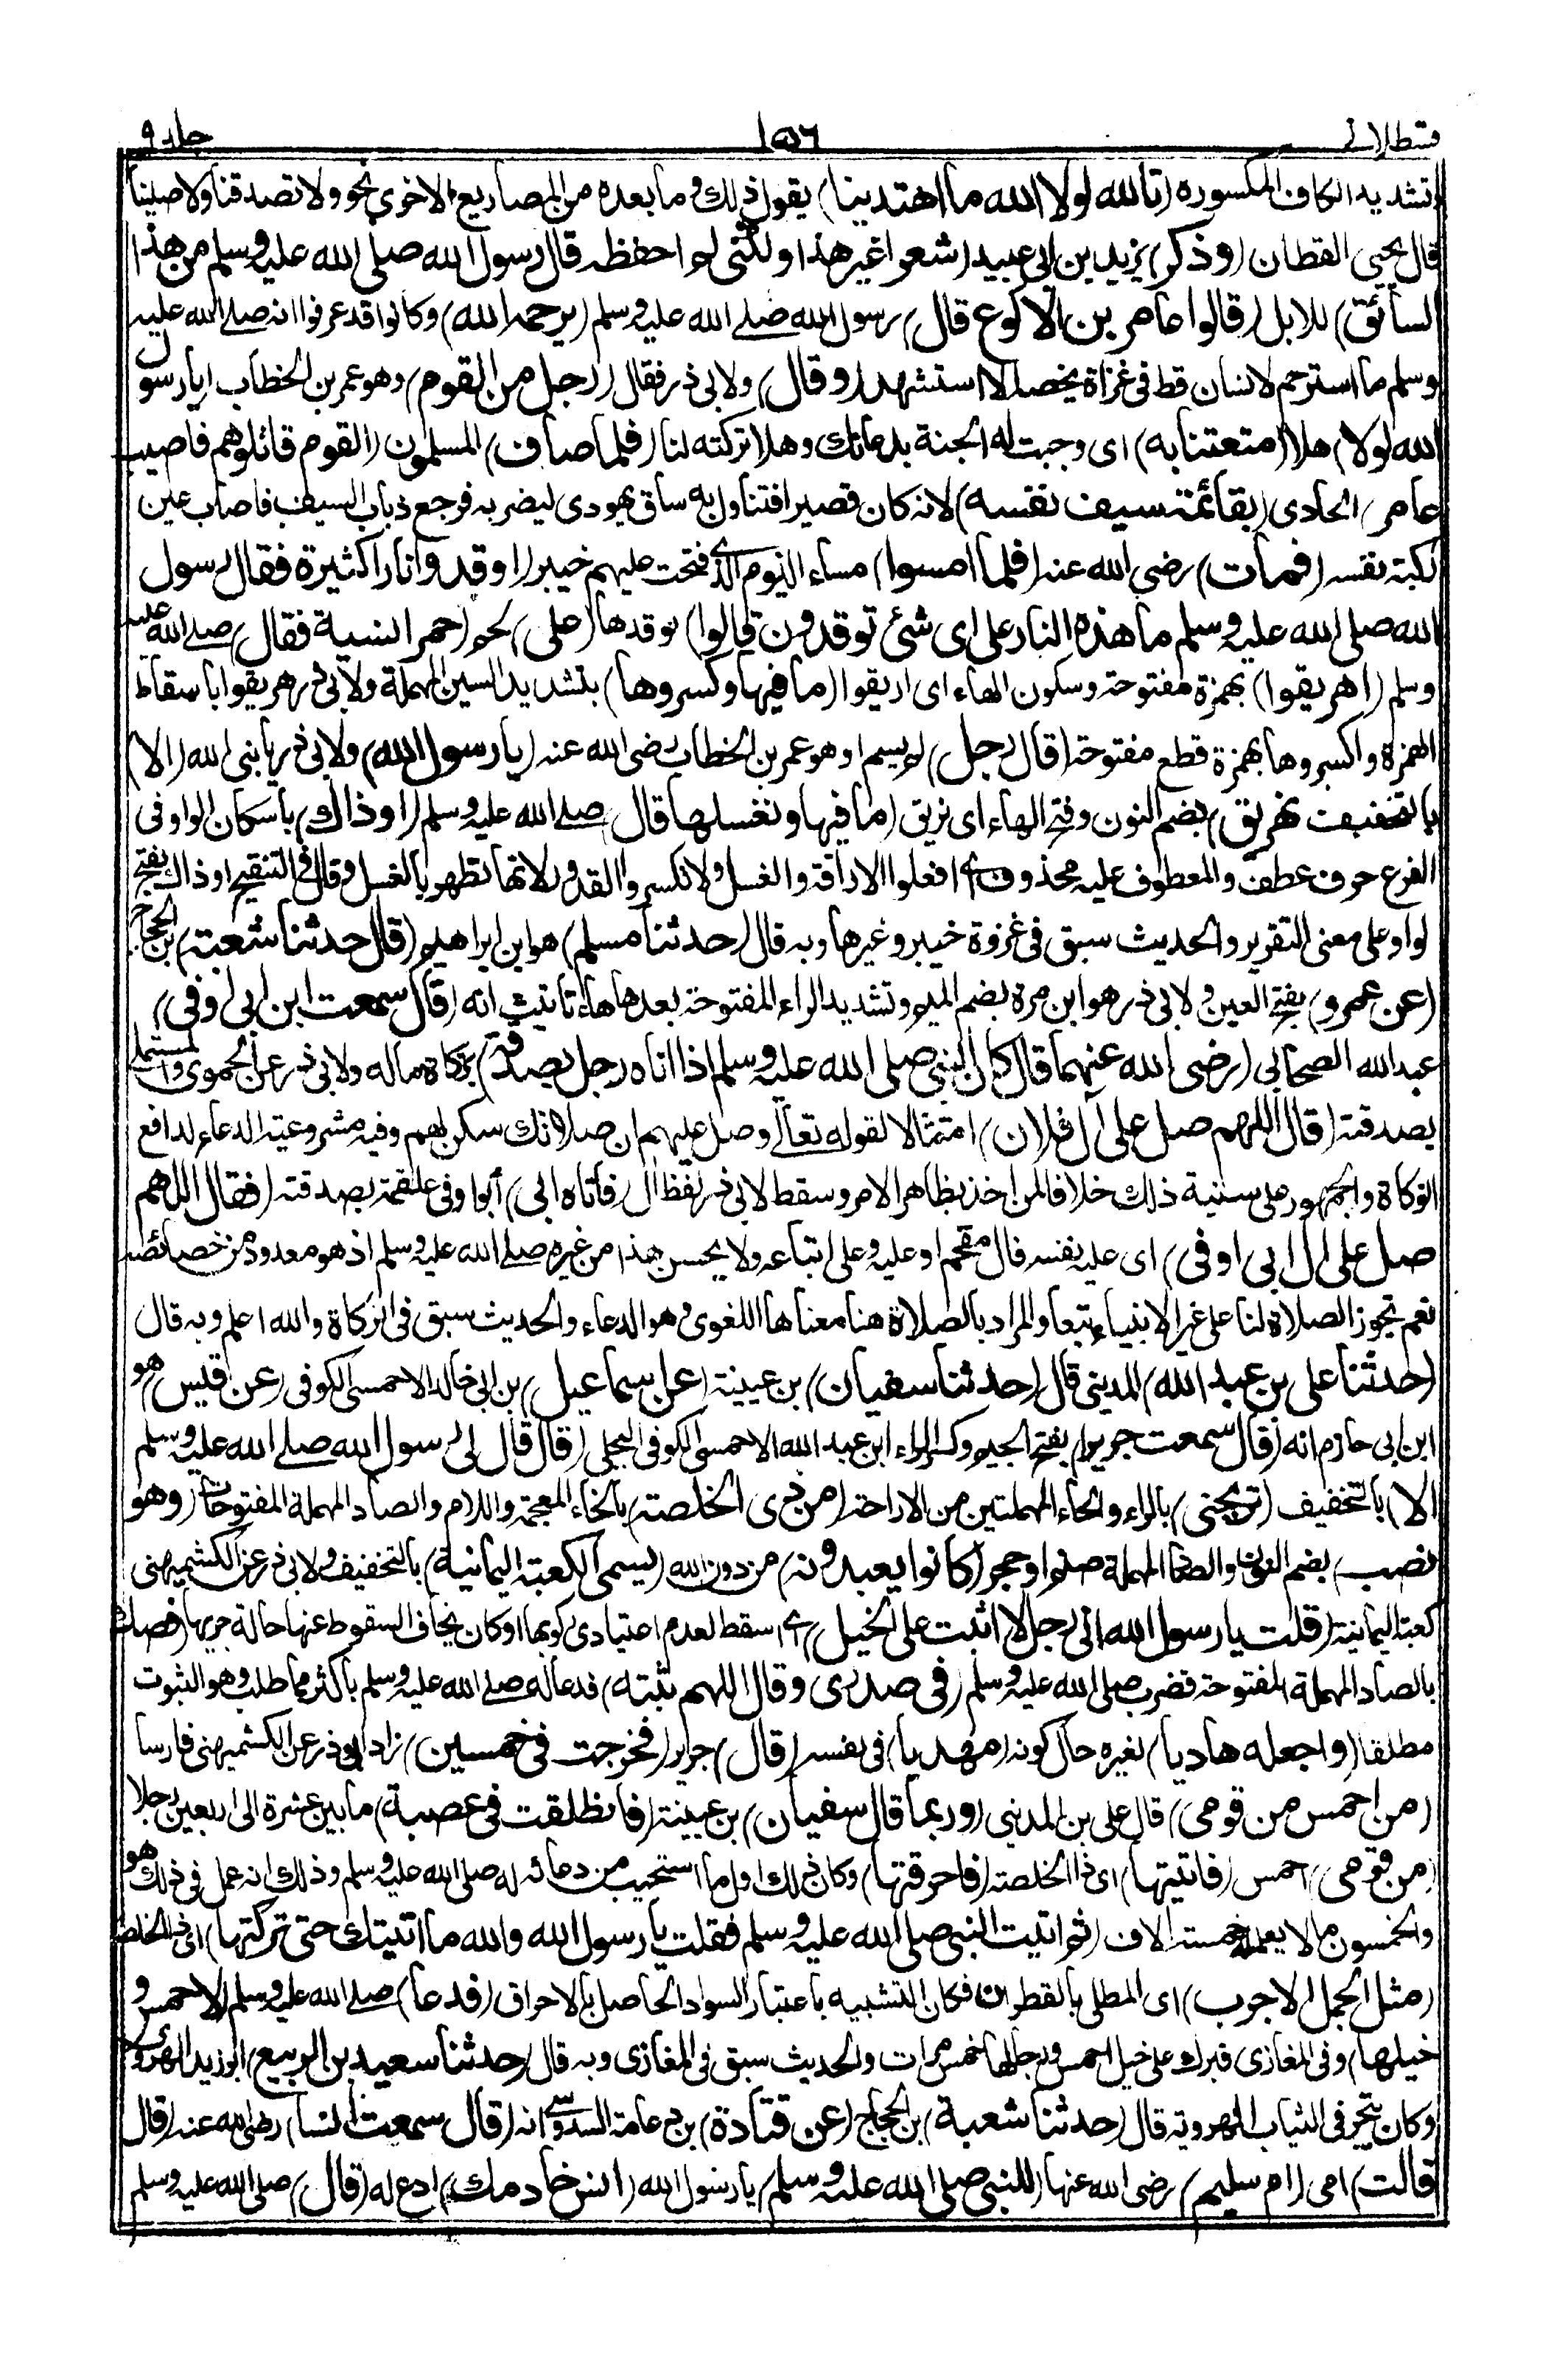 قسطلاني ١٥٦ جلد ٩
وتشديد الكاف المكسورة (تالله لولا الله ما اهتدينا) يقول ذلك وما بعده من المصاريع الاخرى نحو ولا تصدقنا ولا صلينا
قال يحيى القطان (وذكر) يزيد بن ابي عبيد (شعرا غير هذا ولكني لم احفظه قال رسول الله صلى الله عليه وسلم من هذا
السائق) للابل (قالوا عامر بن الاكوع قال) رسول الله صلى الله عليه وسلم (يرحمه الله) وكانوا قد عرفوا انه صلى الله عليه
وسلم ما استرحم لانسان قط فى غزاة يخصه الا استشهد (وقال) ولابى ذر فقال (رجل من القوم) وهو عمر بن الخطاب (يا رسول
الله لولا) هلا (متعتنا به) اى وجبت له الجنة بدعائك وهلا تركته لنا (فلما صاف) المسلمون (القوم قاتلوهم فاصيب
عامر) الحادى (بقائمة سيف نفسه) لانه كان قصيرا فتناول به ساق يهودى ليضربه فرجع ذباب السيف فاصاب عين
ركبة نفسه (فمات) رضي الله عنه (فلما امسوا) مساء اليوم الذى فتحت عليهم خيبر (اوقدوا نارا كثيرة فقال رسول
الله صلى الله عليه وسلم ما هذه النار على اى شئ توقدون قالوا) نوقدها (على) لحم (حمر انسية فقال) صلى الله عليه
وسلم (اهريقوا) بهمزة مفتوحة وسكون الهاء اى اريقوا (ما فيها وكسروها) بتشديد السين المهملة ولابى ذر هريقوا باسقاط
الهمزة واكسروها بهمزة قطع مفتوحة (قال رجل) لم يسم او هو عمر بن الخطاب رضى الله عنه (يا رسول الله) ولابى ذر يا نبى الله (الا)
بالتخفيف (نهريق) بضم النون وفتح الهاء اى نريق (ما فيها ونغسلها قال) صلى الله عليه وسلم (او ذاك) باسكان الواو فى
الفرع حرف عطف والمعطوف عليه محذوف اى افعلوا الاراقة والغسل ولا تكسروا القدور لانها تطهر بالغسل وقال فى التنقيح او ذاك بفتح
الواو على معنى التقرير والحديث سبق فى غزوة خيبر وغيرها وبه قال (حدثنا مسلم) هو ابن ابراهيم (قال حدثنا شعبة) بن الحجاج
(عن عمرو) بفتح العين ولابى ذر هو ابن مرة بضم الميم وتشديد الراء المفتوحة بعدها هاء تانيث انه (قال سمعت ابن ابى اوفى)
عبد الله الصحابى (رضى الله عنهما قال كان النبى صلى الله عليه وسلم اذا اتاه رجل بصدقة) بزكاة ماله ولابى ذر عن الحموى والمستملى
بصدقته (قال اللهم صل على آل فلان) امتثالا لقوله تعالى وصل عليهم ان صلاتك سكن لهم وفيه مشروعية الدعاء لدافع
الزكاة والجمهور على سنية ذلك خلافا لمن اخذ بظاهر الامر وسقط لابى ذر لفظ آل (فاتاه ابى) ابو اوفى علقمة بصدقته (فقال اللهم
صل على آل ابى اوفى) اى عليه نفسه فآل مقحم او عليه وعلى اتباعه ولا يحسن هذا من غيره صلى الله عليه وسلم اذ هو معدود من خصائصه
نعم تجوز الصلاة لنا على غير الانبياء تبعا والمراد بالصلاة هنا معناها اللغوى وهو الدعاء والحديث سبق فى الزكاة والله اعلم وبه قال
(حدثنا على بن عبد الله) المدينى قال (حدثنا سفيان) بن عيينة (عن اسماعيل) بن ابى خالد الاحمسى الكوفى (عن قيس) هو
ابن ابى حازم انه (قال سمعت جريرا) بفتح الجيم وكسر الراء ابن عبد الله الاحمسى الكوفى البجلى (قال قال لى رسول الله صلى الله عليه وسلم
الا) بالتخفيف (تريحنى) بالراء والحاء المهملتين من الاراحة (من ذى الخلصة) بالخاء المعجمة واللام والصاد المهملة المفتوحات (وهو
نصب) بضم النون والصاد المهملة صنم او حجر (كانوا يعبدونه) من دون الله (يسمى الكعبة اليمانية) بالتخفيف ولابى ذر عن الكشميهنى
كعبة اليمانية (قلت يا رسول الله انى رجل لا اثبت على الخيل) اى اسقط لعدم اعتيادى ركوبها او كان يخاف السقوط عنها حالة جريها (فصك)
بالصاد المهملة المفتوحة فضرب صلى الله عليه وسلم (فى صدرى وقال اللهم ثبته) فدعا له صلى الله عليه وسلم باكثر مما طلب وهو الثبوت
مطلقا (واجعله هاديا) لغيره حال كونه (مهديا) فى نفسه (قال) جرير (فخرجت فى خمسين) زاد ابو ذر عن الكشميهنى فارسا
(من احمس من قومى) قال على بن المدينى (وربما قال سفيان) بن عيينة (فانطلقت فى عصبة) ما بين عشرة الى اربعين رجلا
(من قومى) احمس (فاتيتها) اى ذا الخلصة (فاحرقتها) وكان ذلك اول ما استجيب من دعائه له صلى الله عليه وسلم وذلك انه عمل فى ذلك هو
والخمسون ما لا يعمله خمسة الاف (ثم اتيت النبى صلى الله عليه وسلم فقلت يا رسول الله والله ما اتيتك حتى تركتها) اى ذا الخلصة
(مثل الجمل الاجرب) اى المطلى بالقطران فكان التشبيه باعتبار السواد الحاصل بالاحراق (فدعا) صلى الله عليه وسلم (لاحمس و
خيلها) وفى المغازى فبرك على خيل احمس ورجالها خمس مرات والحديث سبق فى المغازى وبه قال (حدثنا سعيد بن الربيع) ابو زيد الهروى
وكان يتجر فى الثياب الهروية قال (حدثنا شعبة) بن الحجاج (عن قتادة) بن دعامة السدوسى انه (قال سمعت انسا) رضى الله عنه (قال
قالت) امى (ام سليم) رضى الله عنها (للنبى صلى الله عليه وسلم) يا رسول الله (انس خادمك) ادع له (قال) صلى الله عليه وسلم